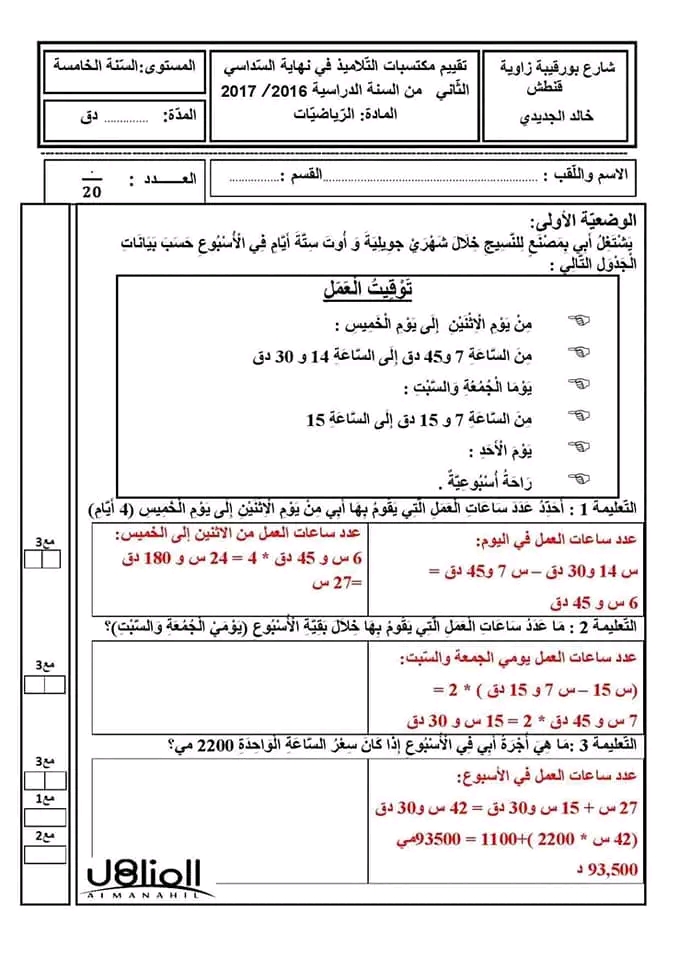 شارع بورقيبة زاوية
قنطش
خالد الجديدي
تقييم مكتسبات التّلاميذ في نهاية السّداسي
الثّاني من السنة الدراسية 2016/ 2017
المادة: الرّياضيّات
المستوى:السّنة الخامسة
المدّة: .............. دق
الاسم واللّقب : ............................................................القسم :................
العـــــدد : 20
الوضعيّة الأولى:
يَشْتَغِلُ أَبِي بِمَصْنَعٍ لِلنَّسِيجِ خِلَالَ شَهْرَيْ جوِيلِيَةَ وَ أُوت سِتَّةَ أَيَّامٍ فِي الْأُسْبُوعِ حَسَبَ بَيَانَاتِ
الْجَدْوَلِ التَّالِي :
تَوْقِيتُ الْعَمَلِ
مِنْ يَوْمِ الْاِثْنَيْنِ إِلَى يَوْمِ الْخَمِيسِ :
مِنَ السَّاعَةِ 7 و45 دق إِلَى السَّاعَةِ 14 و 30 دق
يَوْمَا الْجُمُعَةِ وَالسَّبْتِ :
مِنَ السَّاعَةِ 7 و 15 دق إِلَى السَّاعَةِ 15
يَوْمَ الْأَحَدِ :
رَاحَةُ أُسْبُوعِيَّةٌ .
التّعليمة 1 : أُحَدِّدُ عَدَدَ سَاعَاتِ الْعَمَلِ الَّتِي يَقُومُ بِهَا أَبِي مِنْ يَوْمِ الْاِثْنَيْنِ إِلَى يَوْمِ الْخَمِيسِ (4 أَيَّام)
مع3
عدد ساعات العمل في اليوم:
س 14 و30 دق – س 7 و45 دق =
6 س و 45 دق
عدد ساعات العمل من الاثنين إلى الخميس:
6 س و 45 دق * 4 = 24 س و 180 دق
=27 س
التّعليمة 2 : مَا عَدَدُ سَاعَاتِ الْعَمَلِ الَّتِي يَقُومُ بِهَا خِلَالَ بَقِيَّةِ الْأُسْبُوعِ (يَوْمَيْ الْجُمُعَةِ وَالسَّبْتِ)؟
مع3
عدد ساعات العمل يومي الجمعة والسّبت:
(س 15 – س 7 و 15 دق ) * 2 =
7 س و 45 دق * 2 = 15 س و 30 دق
التّعليمة 3 :مَا هِيَ أُجْرَةُ أَبِي فِي الْأُسْبُوعِ إِذَا كَانَ سِعْرُ السَّاعَةِ الْوَاحِدَةِ 2200 مي؟
مع3
مع1
مع2
عدد ساعات العمل في الأسبوع:
27 س + 15 س و30 دق = 42 س و30 دق
(42 س * 2200 )+1100 = 93500مي
93,500 د
المناهل
ALMANAHIL